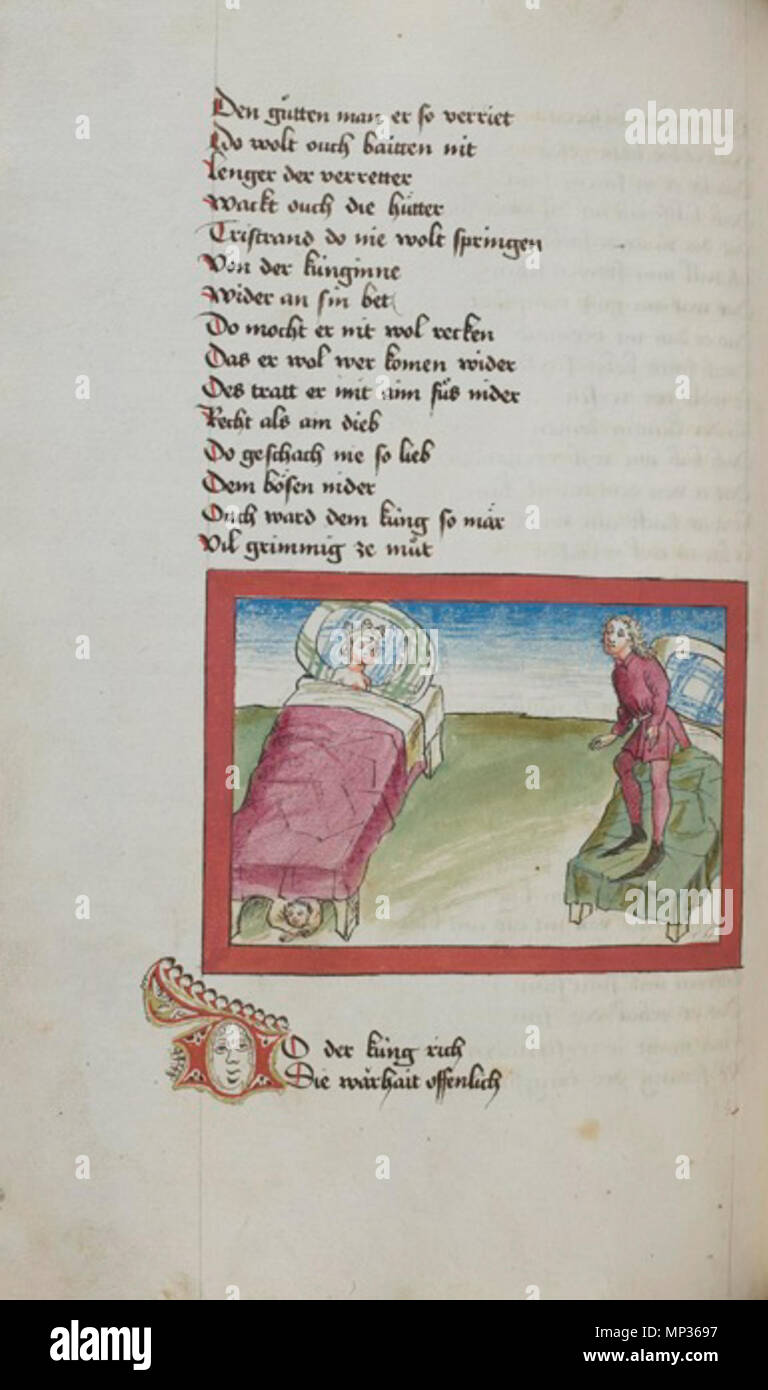 Den gůtten man er so verriet
Do wolt ouch baitten nit
Lenger der verretter
Wackt ouch die hůtter
Tristrand do nie wolt springen
Von der künginne
Wider an sin bet
Do mocht er nit wol recken
Das er wol wer komen wider
Des tratt er mit aim fůs nider
Recht als am dieb
Do geschach nie so lieb
Dem bösen nider
Ouch ward dem küng so mär
Vil grimmig ze můt
DO der küng rich
Die wärhait offenlich
alamy
alamy
Image ID: MP3697
www.alamy.com